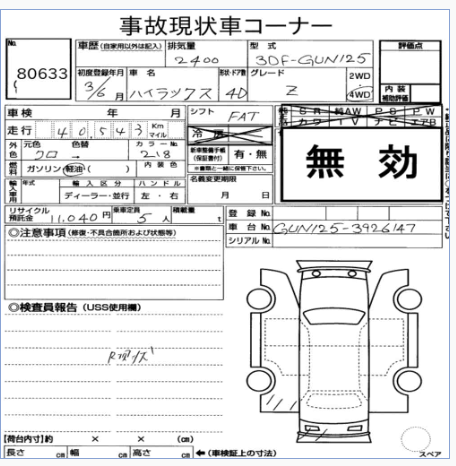 事故現状車コーナー
No.
80633
車歴(自家用以外は記入)
排気量
2400
型式
3DF-GUN125
評価点
初度登録年月
3/6月
車名
ハイラックス
形状・ドア数
4D
グレード
Z
2WD
4WD
内装
補助評価
車検 年 月
シフト
FAT
走行 40,543 Km マイル
冷房
外色
元色 色替
クロ →
カラーNo.
218
新車整備手帳
(保証書付)
有・無
無効
燃料
ガソリン・軽油・( )
内装色
輸入車用
年式
輸入区分
ディーラー・並行
ハンドル
左・右
名義変更期限
月 日
リサイクル預託金
11,040円
乗車定員
5人
積載量
t
登録No.
車台No. GUN125-3926147
シリアルNo.
◎注意事項(修復・不具合箇所および状態等)
◎検査員報告(USS使用欄)
【荷台内寸】約 × × (cm)
長さ cm 幅 cm 高さ cm ←(車検証上の寸法)
スペア